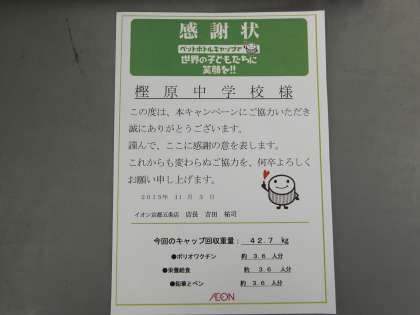 感謝状
ペットボトルキャップで
世界の子どもたちに
笑顔を!!
樫原中学校様
この度は、本キャンペーンにご協力いただき
誠にありがとうございます。
謹んで、ここに感謝の意を表します。
これからも変わらぬご協力を、何卒よろしく
お願い申し上げます。
2015年 11月 5日
イオン京都五条店 店長 吉田 祐司
今回のキャップ回収重量: 42.7 kg
●ポリオワクチン 約 3.6 人分
●栄養給食 約 3.6 人分
●鉛筆とペン 約 3.6 人分
ÆON